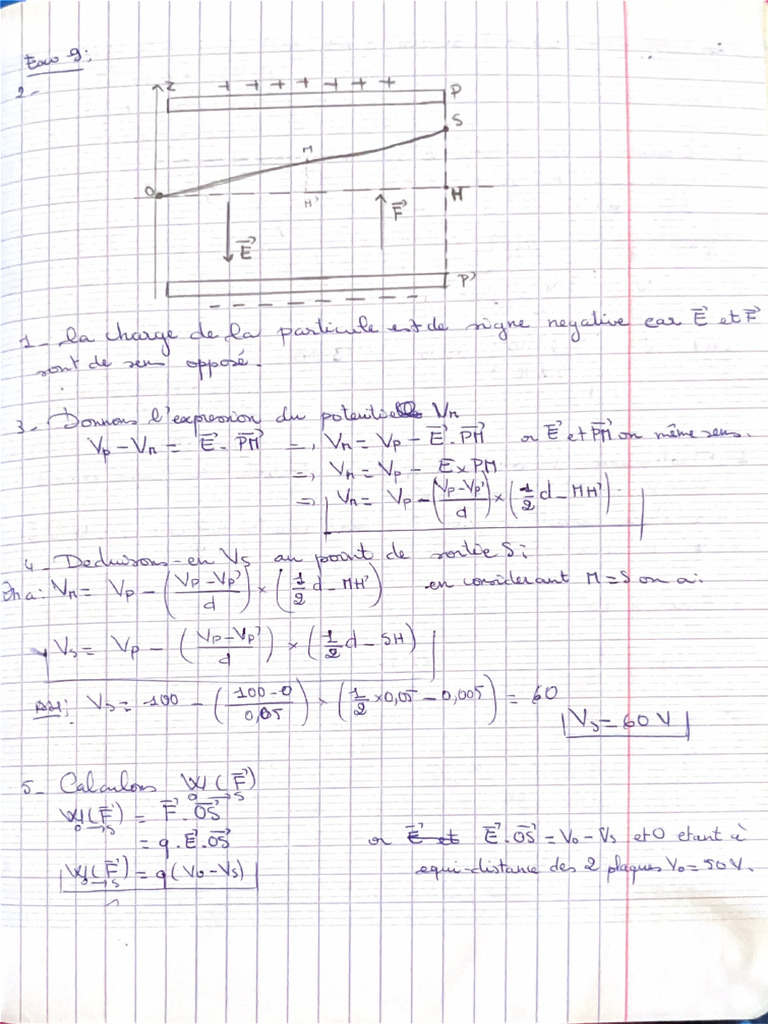 Exo 9:
2-
Z + + + + + + + P
S
M
O H' H
E→ F→
P'
- - - - - - - -
1- la charge de la particule est de signe negative car E→ et F→
sont de sens opposé.
3- Donnons l'expression du potentiel VM
VP - VM = E→. PM→ =, VM = VP - E→. PM→ or E→ et PM→ on même sens.
=, VM = VP - E x PM
=> VM = VP - (VP-VP'/d) x (1/2 d - MH')
4- Deduisons-en VS au point de sortie S:
On a: VM = VP - (VP-VP'/d) x (1/2 d - MH') en considerant M = S on a:
VS = VP - (VP-VP'/d) x (1/2 d - SH)
AN: VS = 100 - (100-0/0,05) x (1/2 x0,05 - 0,005) = 60
VS = 60 V
5- Calculons W(F→) O→S
W(F→) O→S = F→. OS→
= q. E→. OS→ or E→. OS→ = VO - VS et O etant à
W(F→) O→S = q (VO - VS) equi-distance des 2 plaques VO = 50V.